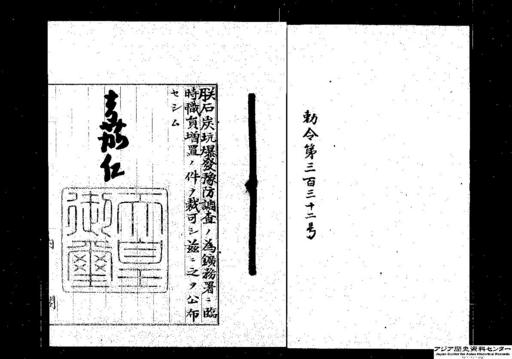 勅令第三百三十二号
朕石炭坑爆發豫防調査ノ為鑛務署ニ臨
時職員増置ノ件ヲ裁可シ茲ニ之ヲ公布
セシム
嘉仁
天皇
御璽
内閣
アジア歴史資料センター
Japan Center for Asian Historical Records